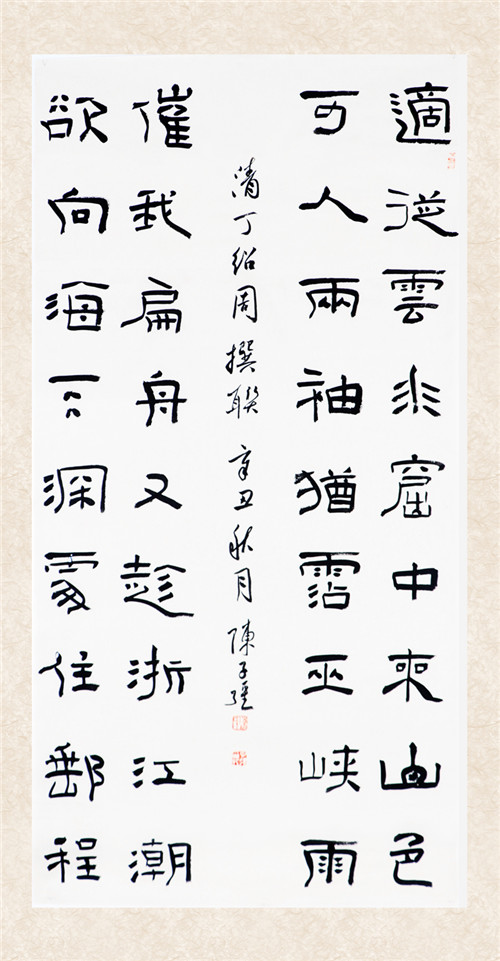 適從雲水窟中來山色
可人兩袖猶霑巫峽雨
欲向海天深處住郵程
催我扁舟又趁浙江潮
清丁紹周撰聯 辛丑秋月 陳子